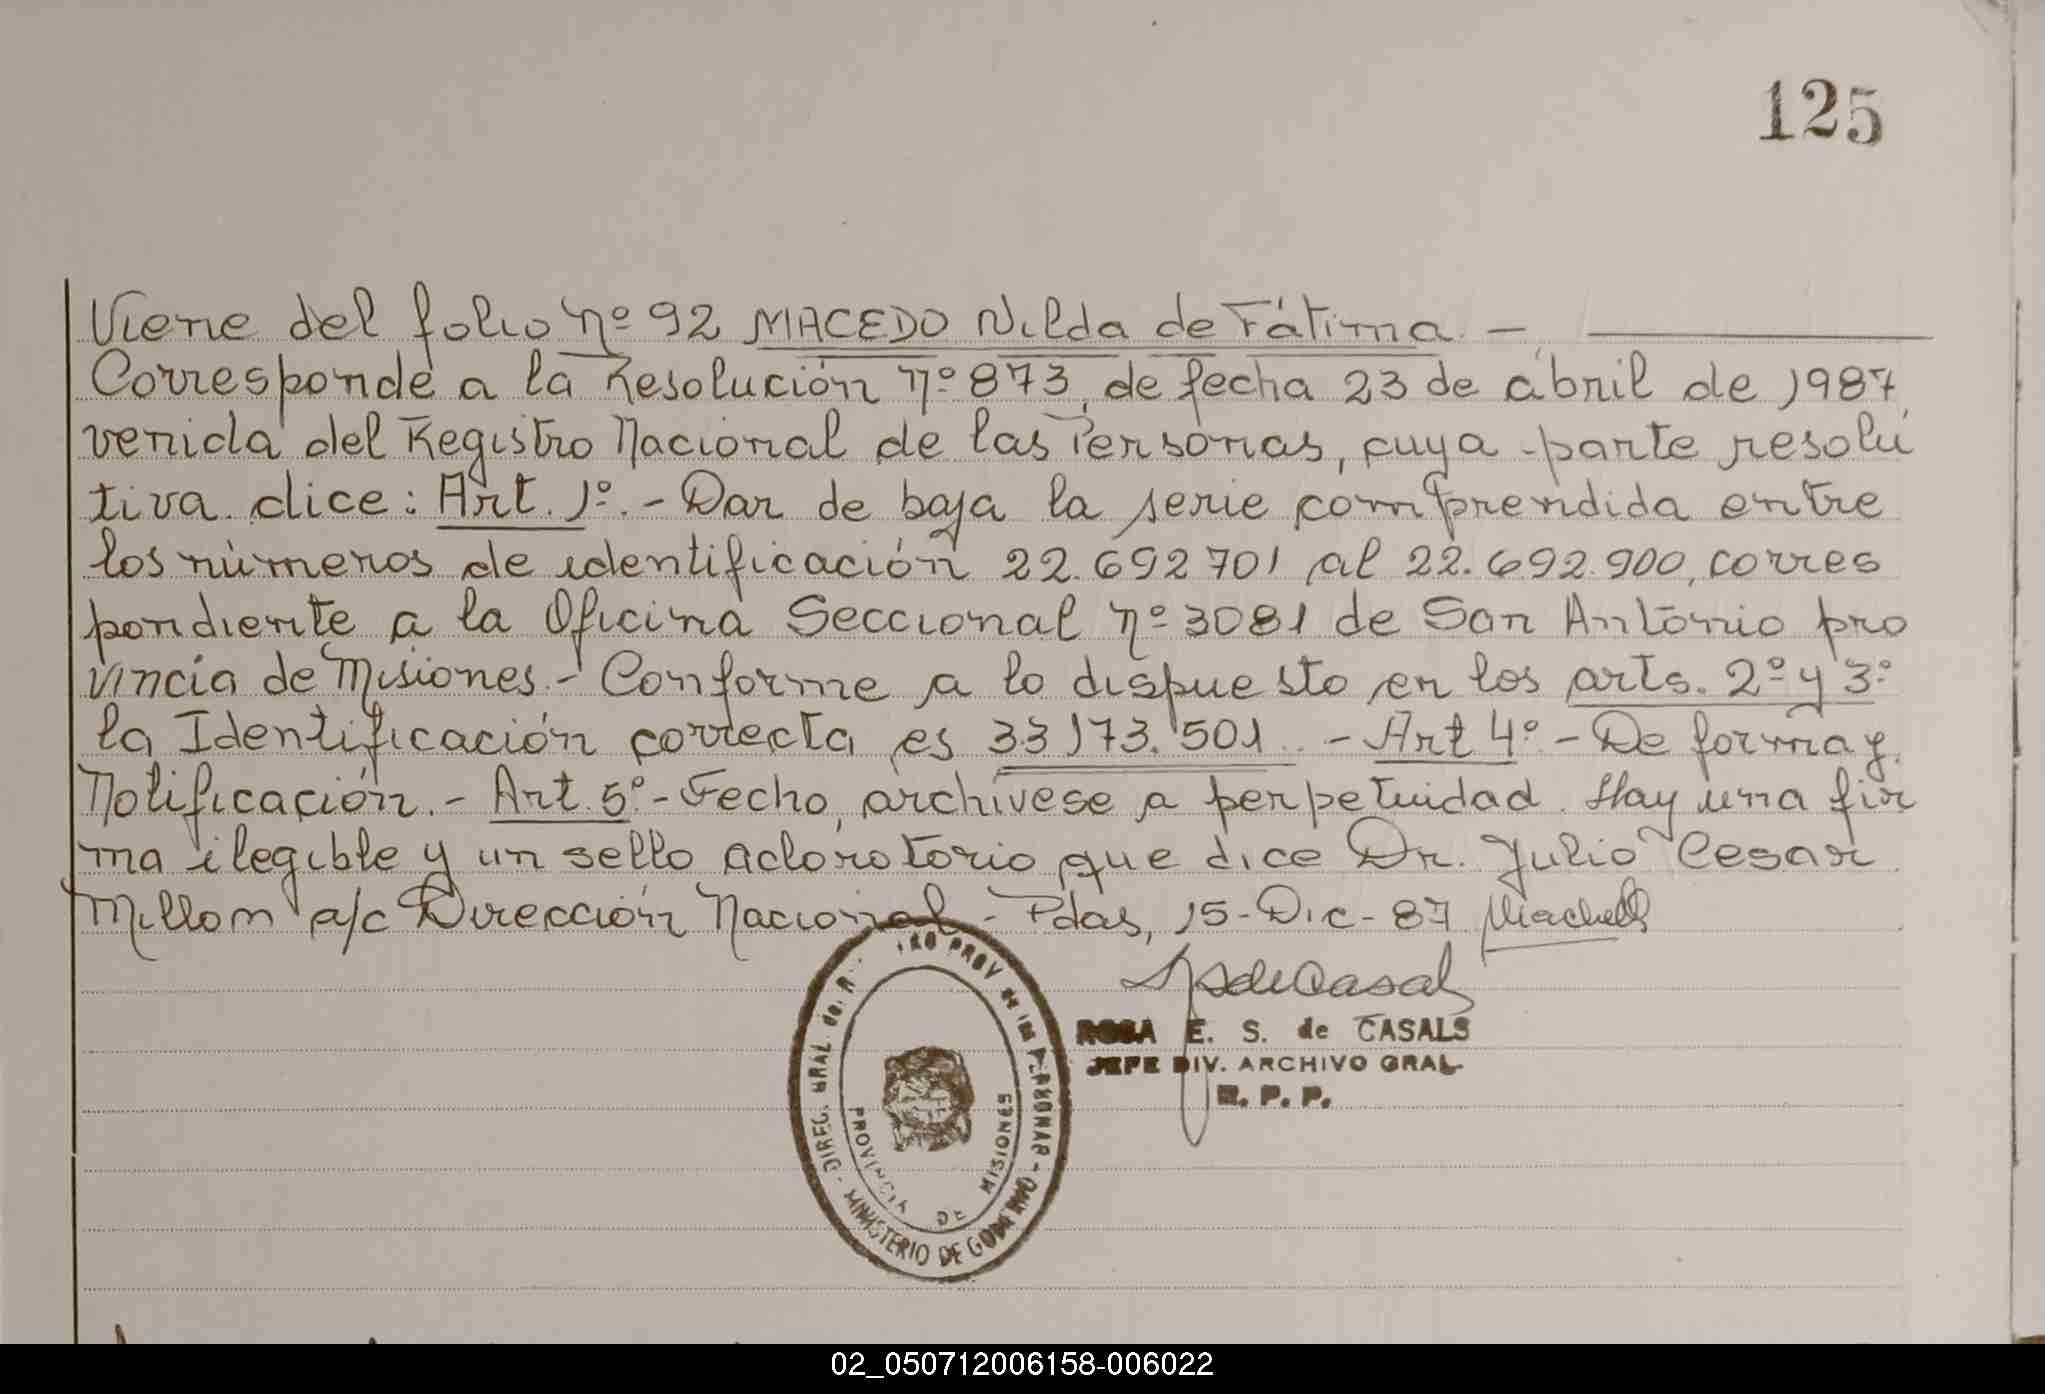 125
Viene del folio nº 92 MACEDO Nilda de Fátima. —
Corresponde a la Resolución nº 873, de fecha 23 de abril de 1987,
venida del Registro Nacional de las Personas, cuya parte resolu
tiva dice: Art. 1º.- Dar de baja la serie comprendida entre
los números de identificación 22.692701 al 22.692.900, corres
pondiente a la Oficina Seccional nº 3081 de San Antonio pro
vincia de Misiones.- Conforme a lo dispuesto en los arts. 2º y 3º
la Identificación correcta es 33173.501. - Art 4º - De forma y
Notificación.- Art. 5º - Fecho, archívese a perpetuidad. Hay una fir
ma ilegible y un sello acloratorio que dice Dr. Julio Cesar
Millom a/c Dirección Nacional - Pdas, 15-Dic-87
ROSA E. S. de CASALS
JEFE DIV. ARCHIVO GRAL
R. P. P.
PROV de las PERSONAS - MINISTERIO DE GOBIERNO - DIREC. GRAL. del
PROVINCIA DE MISIONES
02_050712006158-006022